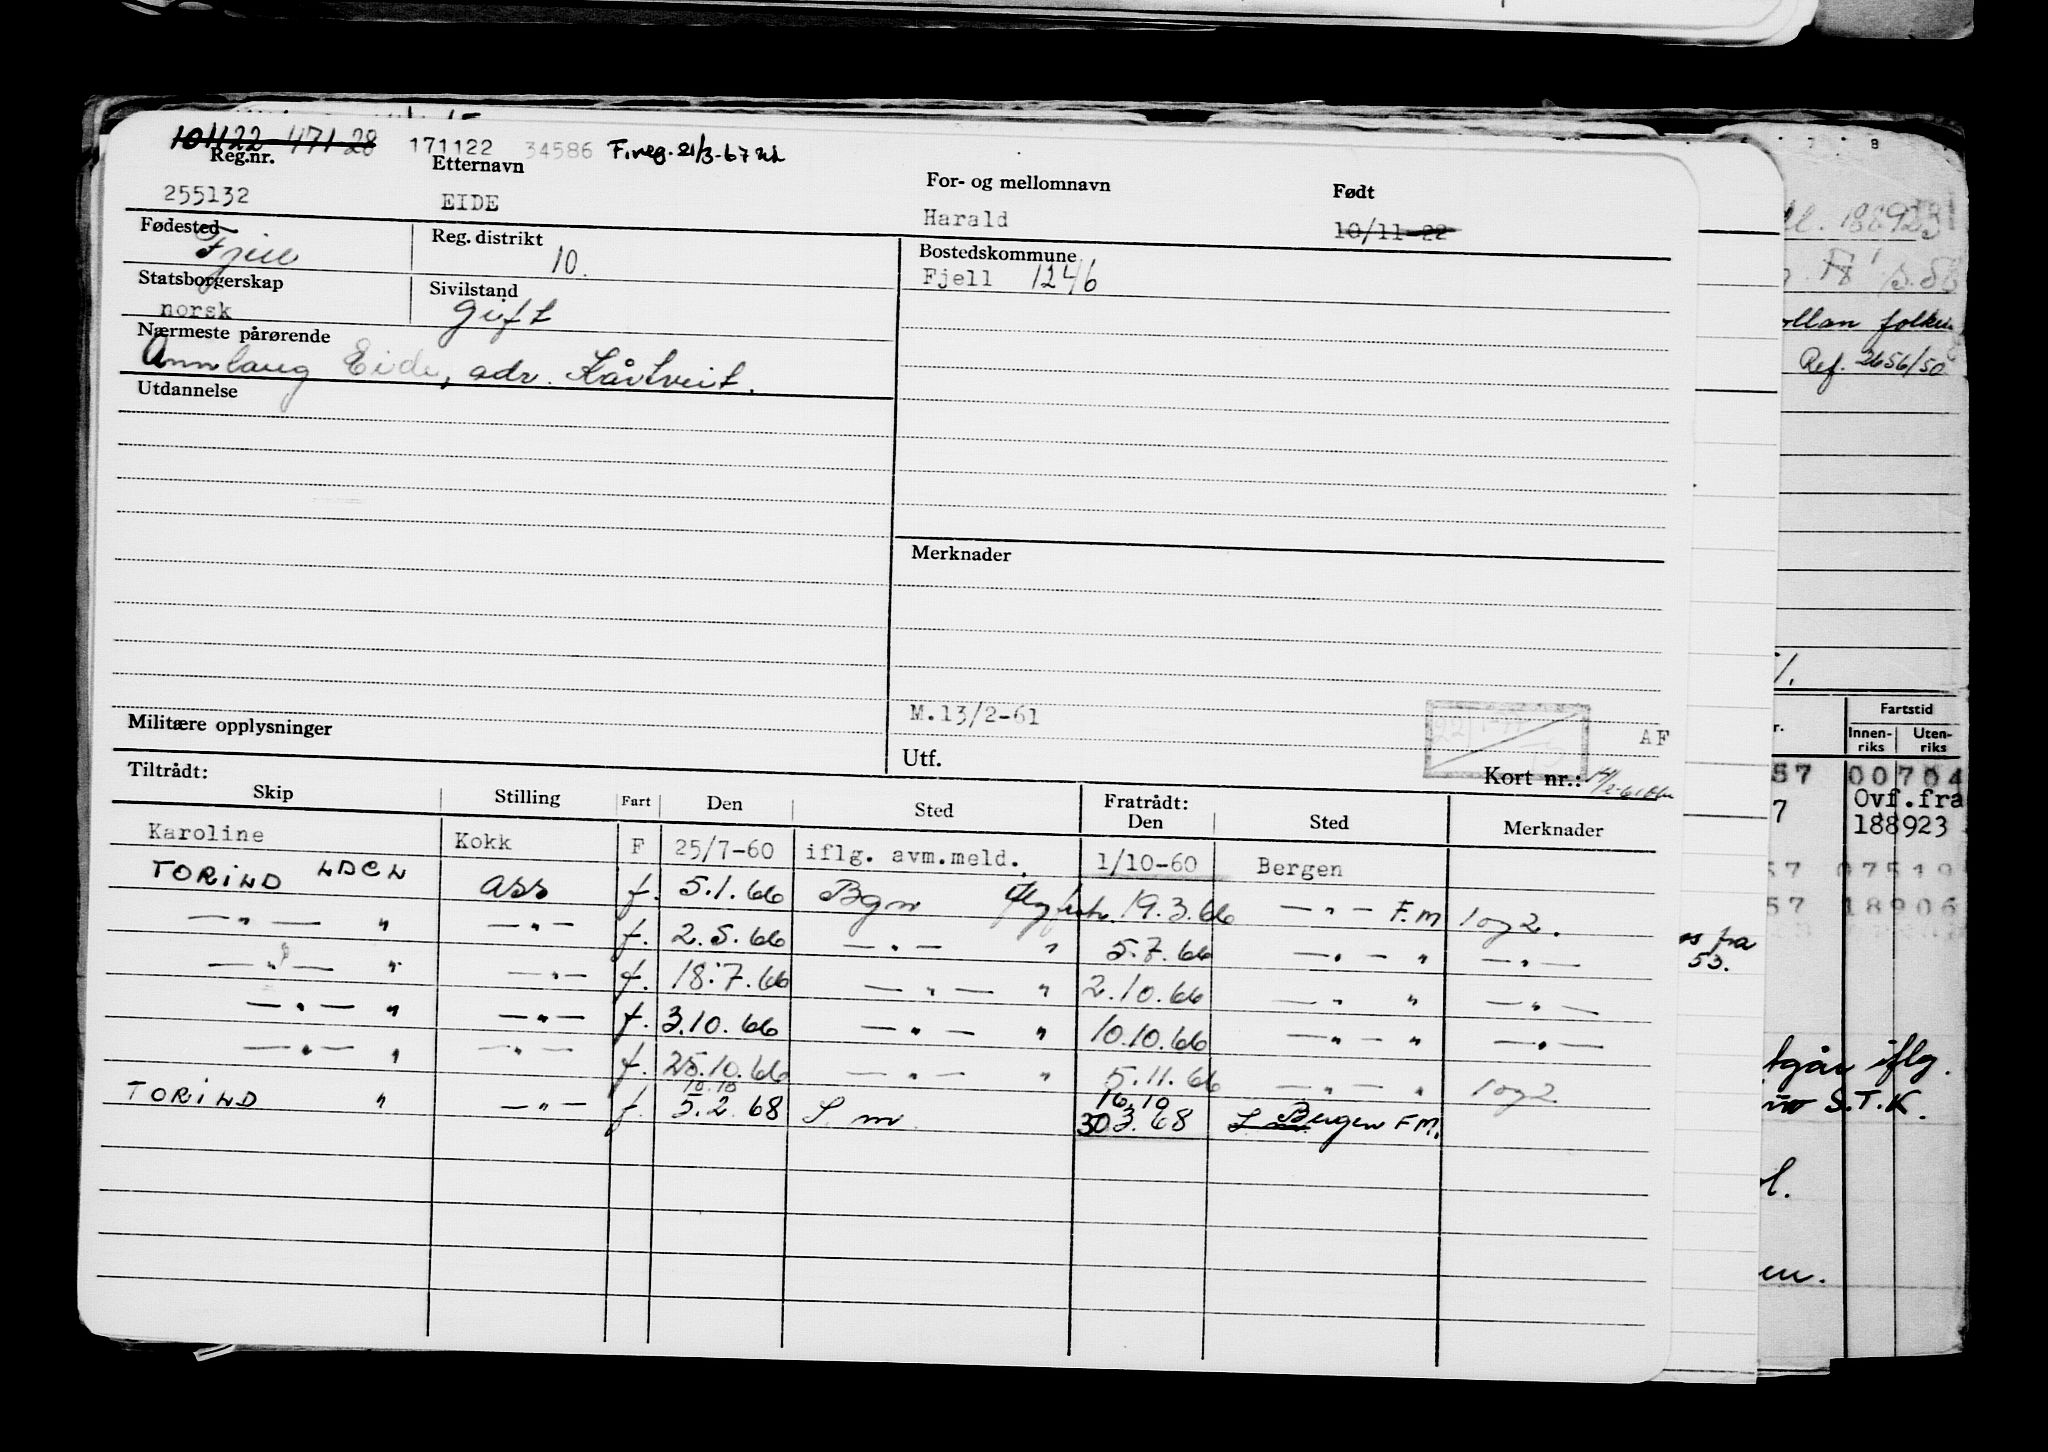 101122 47128 171122 34586 F.reg. 21/3-67
Reg.nr. Etternavn For- og mellomnavn Født
255132 EIDE Harald 10/11-22
Fødested Reg. distrikt Bostedskommune
Fjell 10. Fjell 1246
Statsborgerskap Sivilstand
norsk gift
Nærmeste pårørende
Annlaug Eide, adr. Kårtveit.
Utdannelse
Merknader
M.13/2-61
AF
Militære opplysninger Utf. Kort nr.:
Tiltrådt: Fratrådt:
Skip Stilling Fart Den Sted Den Sted Merknader
Karoline Kokk F 25/7-60 iflg. avm.meld. 1/10-60 Bergen
TORIND LDCL ass f. 5.1.66 Bgn 19.3.66 — " — F.M 1 og 2.
— " — " — " — f. 2.5.66 — " — " 5.7.66 — " — " — " —
— " — " — " — f. 18.7.66 — " — " 2.10.66 — " " — " —
— " — " — " — f. 3.10.66 — " — " 10.10.66 — " — " — " —
— " — " — " — f. 25.10.66 — " — " 5.11.66 — " — " 1 og 2
10.10 16.10
TORIND " — " — f. 5.2.68 S.m. 30 3.68 Bergen F.M.
188923
folkev
Ref. 2656/50
Fartstid
Innen-riks Uten-riks
57 00704
7 Ovf.fra
188923
57 07519
57 18906
fra
53.
iflg.
S.T.K.